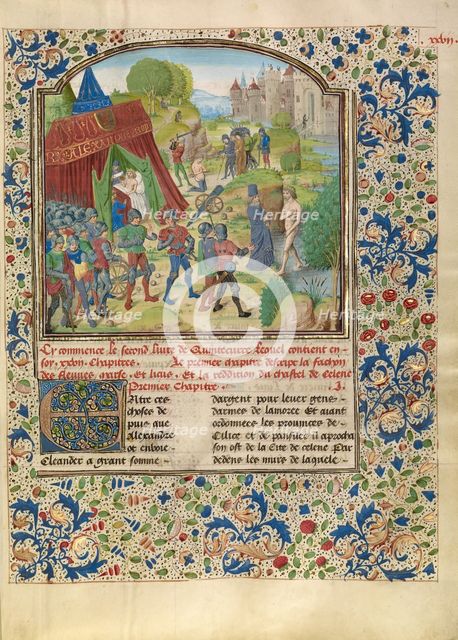 xxvii
Cy commence le second livre de Quintecurce lequel contient en
soy .xxxiii. Chapitres. Le premier chapitre descript la fachon
des fleuves marse. Et licus. Et la reddition du chastel de celene
Premier Chapitre. .I.
Entre ces
choses de
puis que
Alexandre
ot envoie
Cleander a grant somme
dargent pour lever gens
darmes de la moree Et aiant
ordonnees les provinces de
Cilice et de panfile il aprocha
son ost de la Cite de celene Par
dedens les murs de laquele
Heritage
Heritage
Heritage
Heritage
Heritage
Heritage
Heritage
Heritage